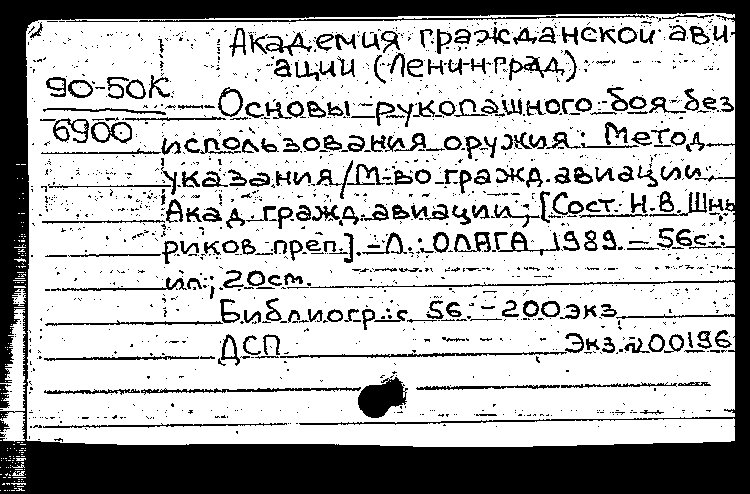 Академия гражданской ави-
ации (Ленинград).
90-50К
6900
Основы рукопашного боя без
использования оружия: Метод.
указания/М-во гражд. авиации.
Акад. гражд. авиации; [Сост. Н.В. Шны
риков преп.]. - Л.: ОЛАГА, 1989. - 56с.:
ил.; 20см.
Библиогр.: с. 56. - 200экз.
ДСП Экз.№00196